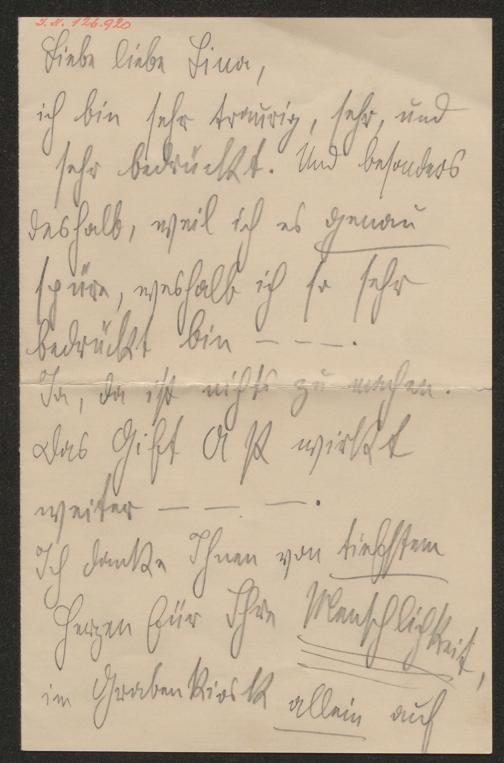 J.N. 126.920
Liebe liebe Lina,
ich bin sehr traurig, sehr, und
sehr bedrückt. Und besonders
deshalb, weil ich es genau
spüre, weshalb ich so sehr
bedrückt bin — — —.
Ja, da ist nichts zu machen.
Das Gift A K wirkt
weiter — — —.
Ich danke Ihnen von tiefstem
Herzen für Ihre Menschlichkeit,
im Grabenkiosk allein auf